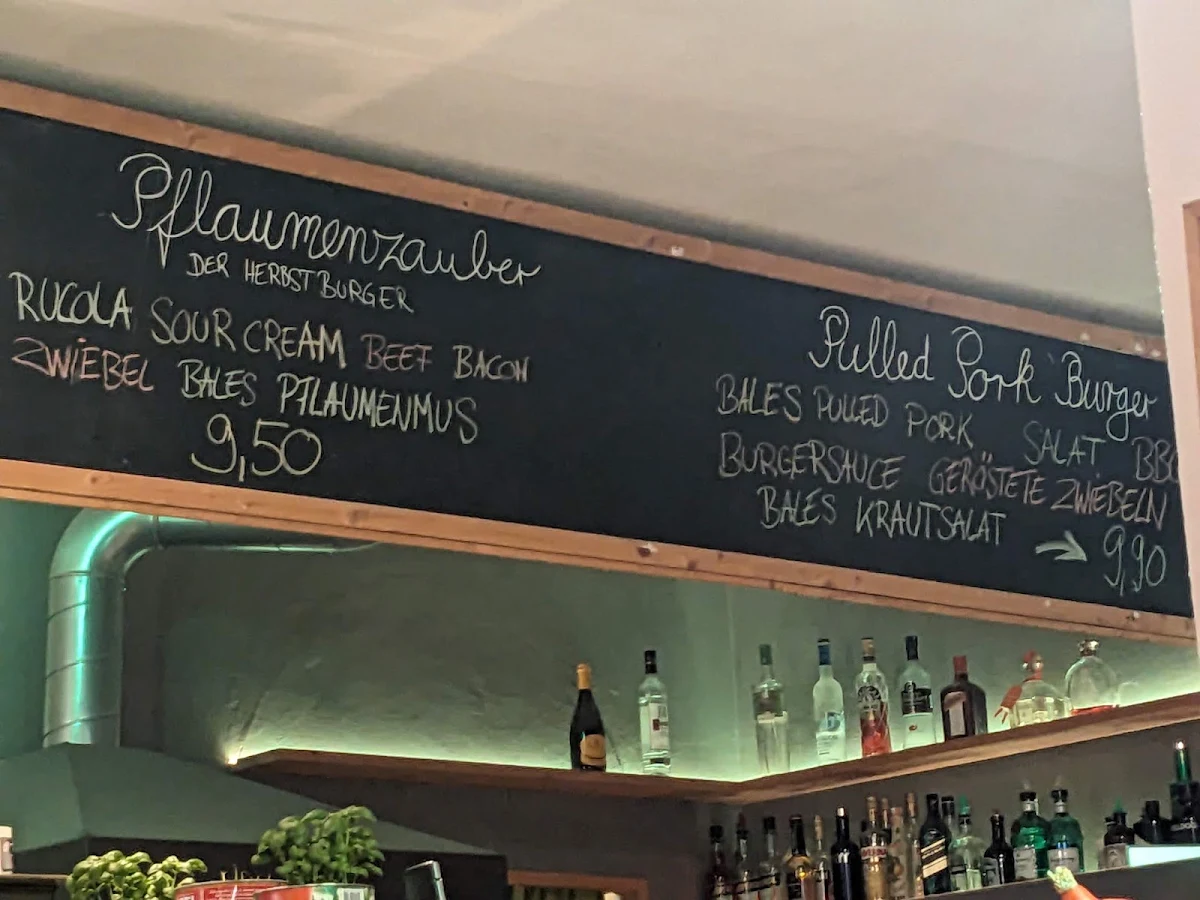 Pflaumenzauber
DER HERBSTBURGER
RUCOLA SOUR CREAM BEEF BACON
ZWIEBEL BALES PFLAUMENMUS
9,50
Pulled Pork Burger
BALES PULLED PORK SALAT BBQ
BURGERSAUCE GERÖSTETE ZWIEBELN
BALES KRAUTSALAT
→ 9,90